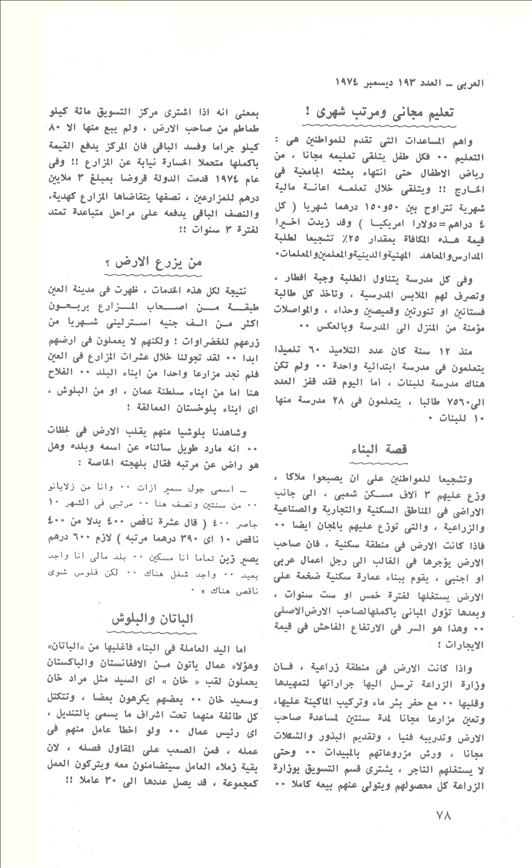 العربى ـ العدد ١٩٣ ديسمبر ١٩٧٤
تعليم مجانى ومرتب شهرى !
واهم المساعدات التى تقدم للمواطنين هى :
التعليم ٠٠ فكل طفل يتلقى تعليمه مجانا ، من
رياض الاطفال حتى انتهاء بعثته الجامعية فى
الخارج !! ويتلقى خلال تعلمه اعانة مالية
شهرية تتراوح بين ٥٠ و١٥٠ درهما شهريا ( كل
٤ دراهم=دولارا امريكيا ) وقد زيدت اخيرا
قيمة هذه المكافاة بمقدار ٢٥٪ تشجيعا لطلبة
المدارس والمعاهد المهنية والدينية والمعلمين والمعلمات٠
وفى كل مدرسة يتناول الطلبة وجبة افطار ،
وتصرف لهم الملابس المدرسية ، وتاخذ كل طالبة
فستانين او تنورتين وقميصين وحذاء ، والمواصلات
مؤمنة من المنزل الى المدرسة وبالعكس ٠٠
منذ ١٢ سنة كان عدد التلاميذ ٦٠ تلميذا
يتعلمون فى مدرسة ابتدائية واحدة ٠٠ ولم تكن
هناك مدرسة للبنات ، أما اليوم فقد قفز العدد
الى ٧٥٦٠ طالبا ، يتعلمون فى ٢٨ مدرسة منها
١٠ للبنات ٠
قصة البناء
وتشجيعا للمواطنين على ان يصبحوا ملاكا ،
وزع عليهم ٣ آلاف مسكن شعبى ، الى جانب
الاراضى فى المناطق السكنية والتجارية والصناعية
والزراعية ، والتى توزع عليهم بالمجان ايضا ٠٠
فاذا كانت الارض فى منطقة سكنية ، فان صاحب
الارض يؤجرها فى الغالب الى رجل اعمال عربى
او اجنبى ، يقوم ببناء عمارة سكنية ضخمة على
الارض يستغلها لفترة خمس او ست سنوات ،
وبعدها تؤول المبانى باكملها لصاحب الارض الاصلى
٠٠ وهذا هو السر فى الارتفاع الفاحش فى قيمة
الايجارات !
واذا كانت الارض فى منطقة زراعية ، فان
وزارة الزراعة ترسل اليها جراراتها لتمهيدها
وقلبها ٠٠ مع حفر بئر ماء وتركيب الماكينة عليها،
وتعين مزارعا مجانا لمدة سنتين لمساعدة صاحب
الارض وتدريبه فنيا ، وتقديم البذور والشتلات
مجانا ، ورش مزروعاتهم بالمبيدات ٠٠ وحتى
لا يستغلهم التاجر ، يشترى قسم التسويق بوزارة
الزراعة كل معصولهم ويتولى عنهم بيعه كاملا ٠٠
بمعنى انه اذا اشترى مركز التسويق مائة كيلو
طماطم من صاحب الارض ، ولم يبع منها الا ٨٠
كيلو جراما وفسد الباقى فان المركز يدفع القيمة
باكملها متحملا الخسارة نيابة عن المزارع !! وفى
عام ١٩٧٤ قدمت الدولة قروضا بمبلغ ٣ ملايين
درهم للمزارعين ، نصفها يتقاضاها المزارع كهدية،
والنصف الباقى يدفعه على مراحل متباعدة تمتد
لفترة ٣ سنوات !!
من يزرع الارض ؟
نتيجة لكل هذه الخدمات ، ظهرت فى مدينة العين
طبقة من اصحاب المزارع يربحون
اكثر من الف جنيه استرلينى شهريا من
زرعهم للخضراوات ! ولكنهم لا يعملون فى ارضهم
ابدا ٠٠ لقد تجولنا خلال عشرات المزارع فى العين
فلم نجد مزارعا واحدا من ابناء البلد ٠٠ الفلاح
هنا اما من ابناء سلطنة عمان ، او من البلوش ،
اى ابناء بلوخستان العمالقة !
وشاهدنا بلوشيا منهم يقلب الارض فى لحظات
٠٠ انه مارد طويل سالناه عن اسمه وبلده وهل
هو راض عن مرتبه فقال بلهجته الخاصة :
ـ اسمى جول سمير ازات ٠٠ وانا من زلابانو
٠٠ من سنتين ونصف هنا ٠٠ مرتبى فى الشهر ١٠
جاصر ٤٠٠ ( قال عشرة ناقص ٤٠٠ بدلا من ٤٠٠
ناقص ١٠ اى ٣٩٠ درهما مرتبه ) لازم ٦٠٠ درهم
يصير زين تماما انا مسكين ٠٠ بلد مالى انا واجد
بعيد ٠٠ واجد شغل هناك ٠٠ لكن فلوس شوى
ناقص هناك »
الباتان والبلوش
اما اليد العاملة فى البناء فاغلبها من «الباتان»
وهؤلاء عمال ياتون من الافغانستان والباكستان
يحملون لقب « خان » اى السيد مثل مراد خان
وسعيد خان ٠٠ بعضهم يكرهون بعضا ، وتتكتل
كل طائفة منهما تحت اشراف ما يسمى بالتنديل ،
اى رئيس عمال ٠٠ ولو اخطا عامل منهم فى
عمله ، فمن الصعب على المقاول فصله ، لان
بقية زملاء العامل سيتضامنون معه ويتركون العمل
كمجموعة ، قد يصل عددها الى ٣٠ عاملا !!
٧٨